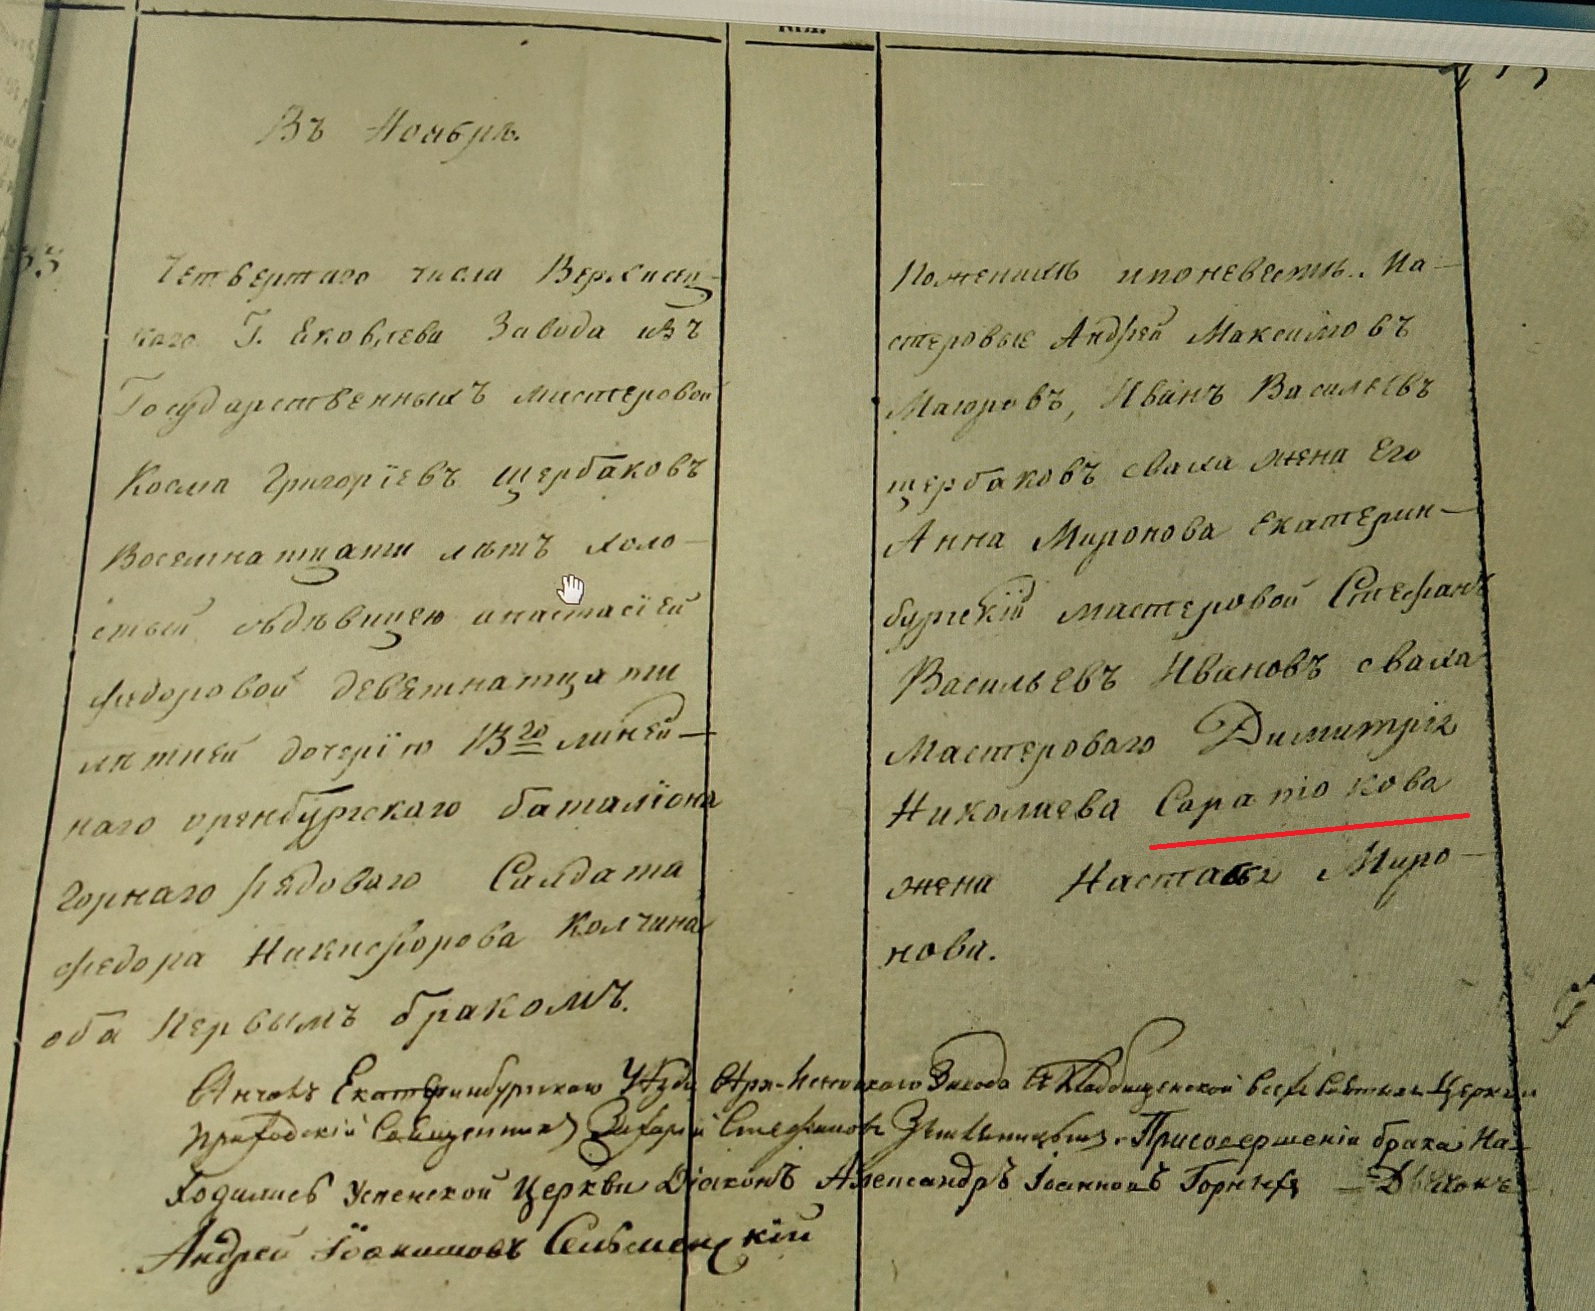 Въ Ноябрѣ.
Четвертаго числа Верхисец-
каго Г. Яковлева Завода изъ
Государственныхъ мастеровой
Косма Григорїевъ щербаковъ
Восемнатцати лѣтъ холо-
стый съдѣвицею анастасїей
федоровой девятнатцати
лѣтней дочерїю 13го линей-
наго оренбургскаго баталїона
Горнаго рядоваго Салдата
федора Никифорова Колчина
оба Первымъ бракомъ.
Поженихѣ ипоневестѣ. Ма-
стеровые Андрей Максимовъ
Маюровъ, Иванъ Васильевъ
щербаковъ сваха жена Его
Анна Миронова Екатерин-
бургскїй мастеровой Стефанъ
Васильевъ Ивановъ сваха
Мастероваго Димитрїя
Николаева Сарапюкова
жена Настасья Миро-
нова.
Екатеринбургскаго Уѣзда Завода Церкви
Приходскій Священник Захарїй Стефанов Присовершенїи брака На-
ходились Успенской Церкви Дїаконъ Александръ Іоанновъ
Андрей